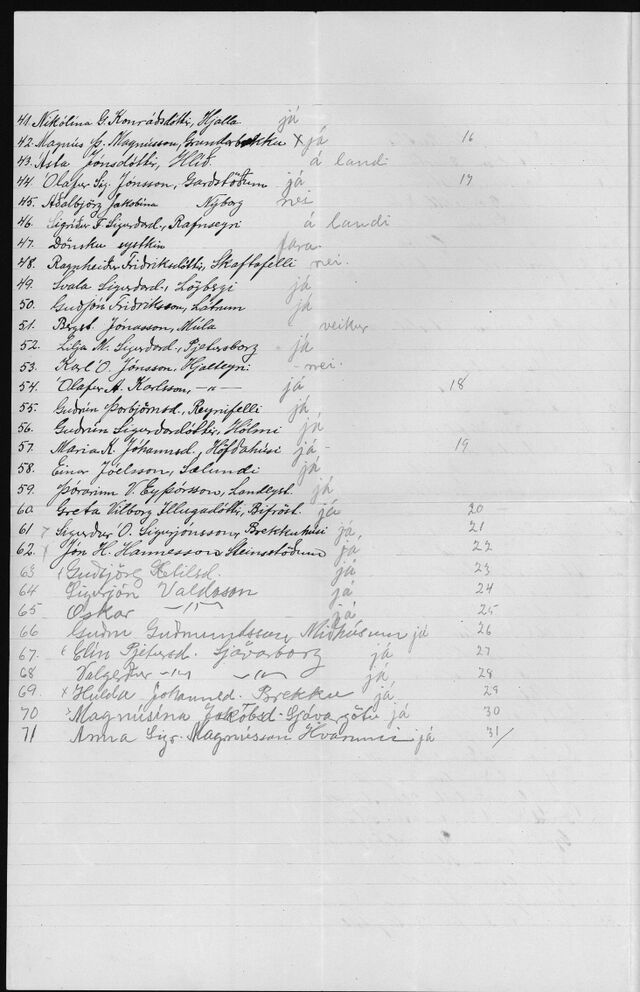 41. Nikólína G. Konráðsdóttir, Hjalla já
42. Magnús Þ. Magnússon, Grundarbrekku x já 16
43. Ásta Jónsdóttir, Hlíð á landi
44. Ólafur Sig. Jónsson, Garðstöðum já 17
45. Aðalbjörg Jakobína Nýborg nei
46. Sigríður F. Sigurðard., Rafnseyri á landi
47. Dönsku systkin fara
48. Ragnheiður Friðriksdóttir, Skaftafelli nei.
49. Svala Sigurðard., Lögbergi já
50. Guðjón Friðriksson, Látrum já
51. Bergst. Jónasson, Múla veikur
52. Lilja M. Sigurðard., Pjetursborg já
53. Karl Ó. Jónsson, Hjalteyri nei.
54. Ólafur A. Karlsson, -"- já 18
55. Guðrún Þorbjörnsd., Reynifelli já
56. Guðrún Sigurðardóttir, Hólmi já
57. María K. Jóhannsd., Höfðahúsi já 19
58. Einar Jóelsson, Sælundi já
59. Þórarinn V. Eyþórsson, Landlyst. já
60. Gréta Vilborg Illugadóttir, Bifröst já 20
61 Sigurður Ó. Sigurjónsson, Brekkuhúsi já, 21
62. Jón H. Hannesson Steinsstöðum já 22
63 Guðbjörg Ketilsd. já 23
64 Sigurjón Valdason já 24
65 Óskar -"- já 25
66 Guðm Guðmundsson, Miðhúsum já 26
67. Elín Pjetursd. Sjávarborg já 27
68 Valgerður -"- -"- já 28
69. x Hulda Jóhannsd. Brekku já 29
70 Magnúsína Jakobsd. Sjávargötu já 30
71 Anna Sigr. Magnússon Hvammi já 31